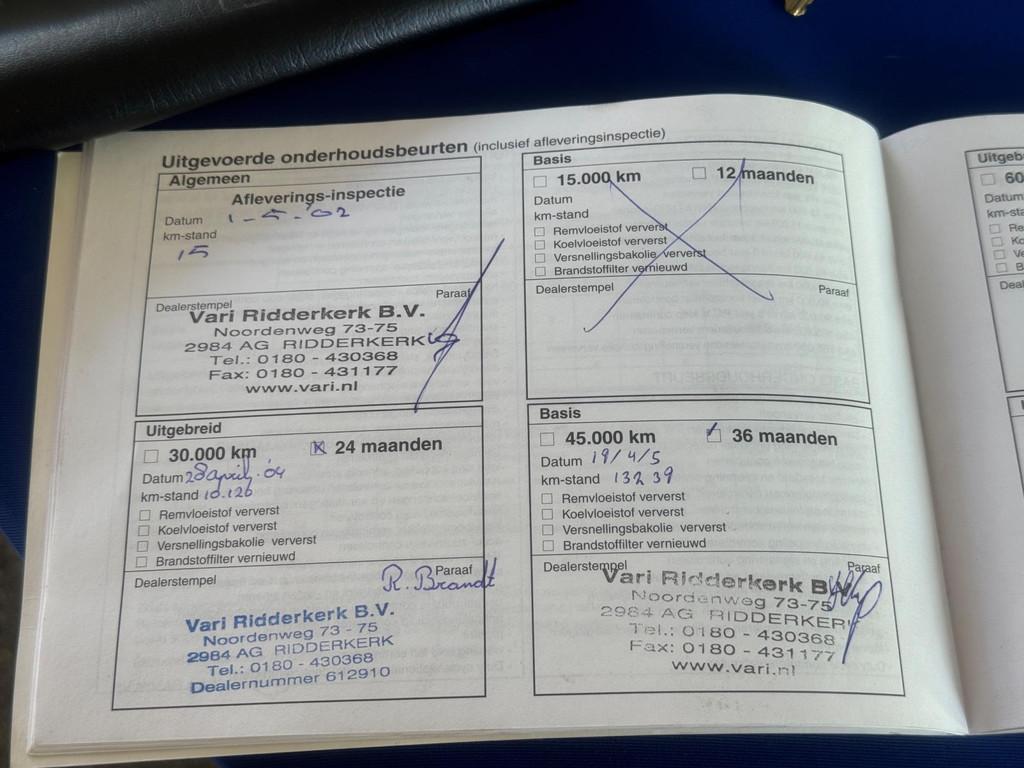 Uitgevoerde onderhoudsbeurten (inclusief afleveringsinspectie)
Algemeen
Afleverings-inspectie
Datum 1-5-'02
km-stand
15
Dealerstempel Paraaf
Vari Ridderkerk B.V.
Noordenweg 73-75
2984 AG RIDDERKERK
Tel.: 0180 - 430368
Fax: 0180 - 431177
www.vari.nl
Basis
15.000 km 12 maanden
Datum
km-stand
Remvloeistof ververst
Koelvloeistof ververst
Versnellingsbakolie ververst
Brandstoffilter vernieuwd
Dealerstempel Paraaf
Uitgebreid
30.000 km 24 maanden
Datum 28 april '04
km-stand 10.126
Remvloeistof ververst
Koelvloeistof ververst
Versnellingsbakolie ververst
Brandstoffilter vernieuwd
Dealerstempel Paraaf
R. Brandt
Vari Ridderkerk B.V.
Noordenweg 73 - 75
2984 AG RIDDERKERK
Tel.: 0180 - 430368
Dealernummer 612910
Basis
45.000 km 36 maanden
Datum 19/4/5
km-stand 13239
Remvloeistof ververst
Koelvloeistof ververst
Versnellingsbakolie ververst
Brandstoffilter vernieuwd
Dealerstempel Paraaf
Vari Ridderkerk B.V.
Noordenweg 73-75
2984 AG RIDDERKERK
Tel.: 0180 - 430368
Fax: 0180 - 431177
www.vari.nl
Uitgeb
60
Datum
km-sta
Re
Ko
Ve
B
Deal